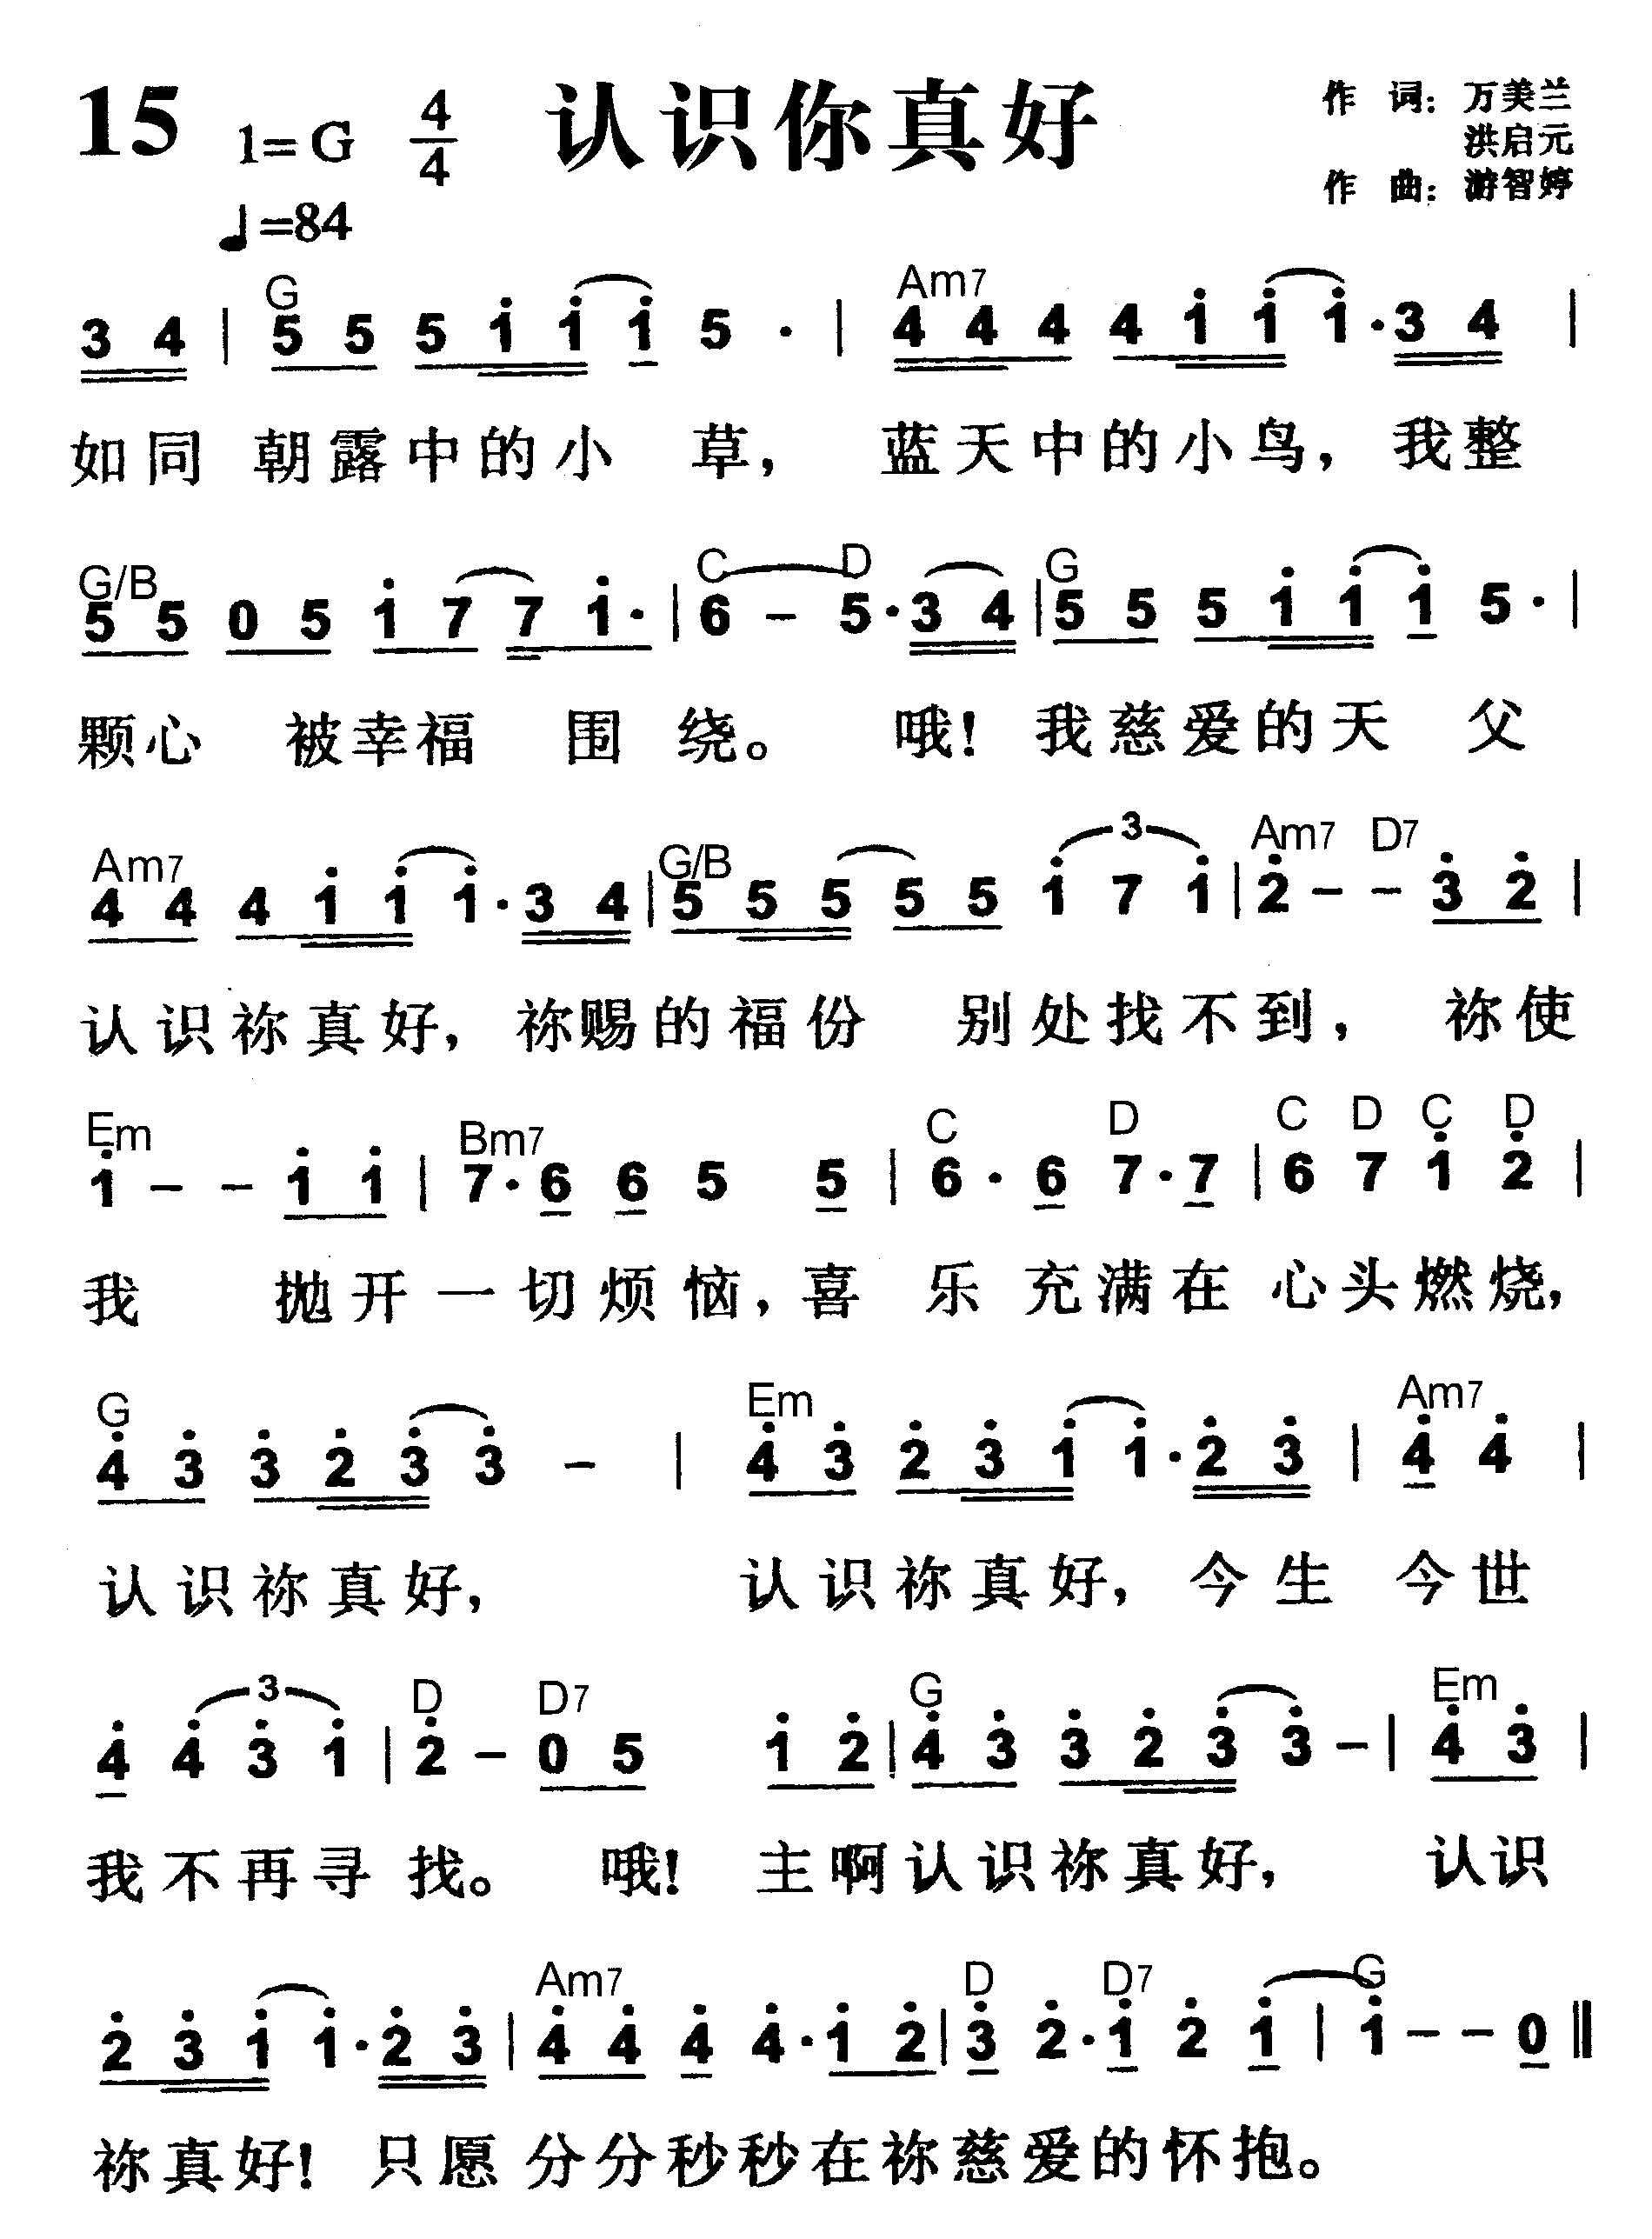 15 1=G 4/4 认识你真好 作 词：万美兰
洪启元
♩=84 作 曲：游智婷
G Am7
3 4 | 5 5 5 1̇ 1̇ 1̇ 5 · | 4 4 4 4 1̇ 1̇ 1̇ · 3 4 |
如同 朝露中的小 草， 蓝天中的小鸟，我整
G/B C D G
5 5 0 5 1̇ 7 7 1̇ · | 6 – 5 · 3 4 | 5 5 5 1̇ 1̇ 1̇ 5 · |
颗心 被幸福 围 绕。 哦！ 我慈爱的天 父
Am7 G/B 3 Am7 D7
4 4 4 1̇ 1̇ 1̇ · 3 4 | 5 5 5 5 5 1̇ 7 1̇ | 2̇ – – 3̇ 2̇ |
认识祢真好，祢赐的福份 别处找不到， 祢使
Em Bm7 C D C D C D
1̇ – – 1̇ 1̇ | 7 · 6 6 5 5 | 6 · 6 7 · 7 | 6 7 1̇ 2̇ |
我 抛开一切烦恼，喜 乐充满在心头燃烧，
G Em Am7
4̇ 3̇ 3̇ 2̇ 3̇ 3̇ – | 4̇ 3̇ 2̇ 3̇ 1̇ 1̇ · 2̇ 3̇ | 4̇ 4̇ |
认识祢真好， 认识祢真好，今生 今世
3 D D7 G Em
4̇ 4̇ 3̇ 1̇ | 2̇ – 0 5 1̇ 2̇ | 4̇ 3̇ 3̇ 2̇ 3̇ 3̇ – | 4̇ 3̇ |
我不再寻找。 哦！ 主啊认识祢真好， 认识
Am7 D D7 G
2̇ 3̇ 1̇ 1̇ · 2̇ 3̇ | 4̇ 4̇ 4̇ 4̇ · 1̇ 2̇ | 3̇ 2̇ · 1̇ 2̇ 1̇ | 1̇ – – 0 ‖
祢真好！ 只愿分分秒秒在祢慈爱的怀抱。